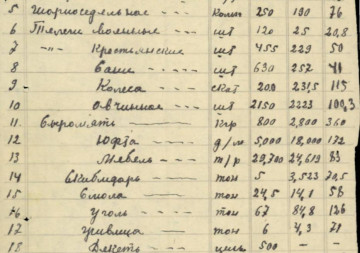 5 Шорноседельное - - - Компл 250 190 76
6 Телеги военные - - шт 120 25 20,8
7 -"- Крестьянские шт 455 229 50
8 Сани - - - шт 630 257 41
9 Колеса - - скат 200 231,5 115
10 Овчинное - - - шт 2150 2223 103,3
11. Сыромять —— кгр 800 2,800 360
12 Юфта —— д/м 5,000 18,000 172
13 Мебель —— т/р 29,700 24,619 83
14 Скипидарь —— тон 5 3,523 70,5
15 Смола —— тон 24,5 14,1 58
16 Уголь - - - - тон 67 84,8 126
17 Живица — - тон 6 4,3 71
18 Деготь - - - цнт 500 — —